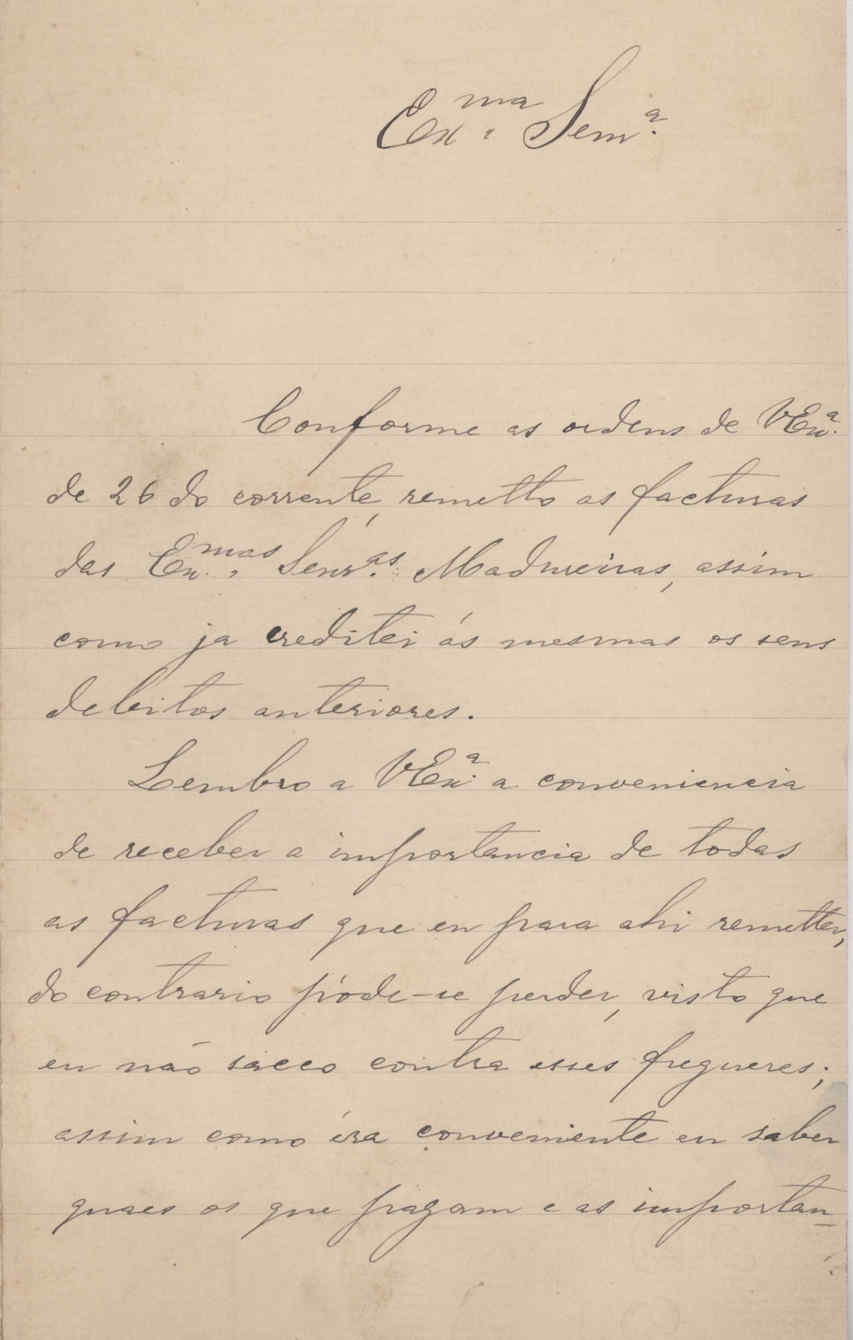 Ex.ma Senr.a
Conforme as ordens de VEx.a
de 26 do corrente, remetto as facturas
das Ex.mas Senr.as Madureiras, assim
como ja creditei ás mesmas os seus
debitos anteriores.
Lembro a VEx.a a conveniencia
de receber a importancia de todas
as facturas que eu para ahi remetter,
do contrario póde-se perder, visto que
eu não sacco contra esses freguezes;
assim como éra conveniente eu saber
quaes os que pagam e as importan-